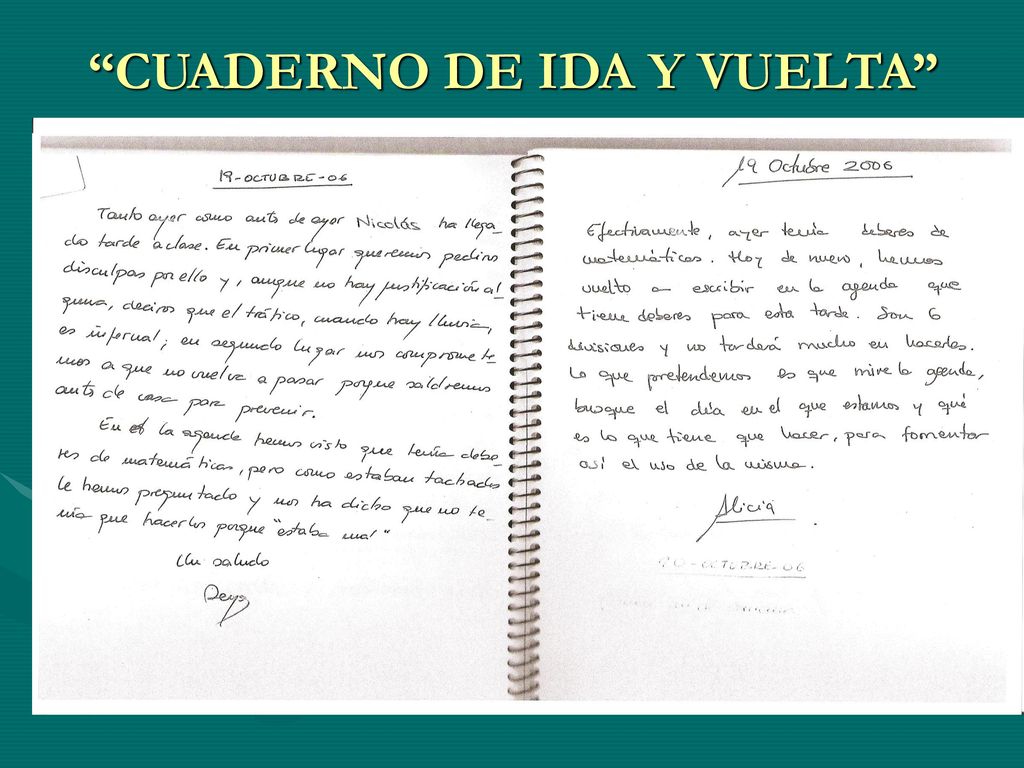 “CUADERNO DE IDA Y VUELTA”
19-OCTUBRE-06
Tanto ayer como antes de ayor Nicolás ha llega-
do tarde a clase. En primer lugar queremos pediros
disculpas por ello y, aunque no hay justificación al-
guna, deciros que el tráfico, cuando hay lluvia,
es infernal; en segundo lugar nos compromete-
mos a que no vuelva a pasar porque saldremos
antes de casa para prevenir.
En la agenda hemos visto que tenía debe-
res de matemáticas, pero como estaban tachados
le hemos preguntado y nos ha dicho que no te-
nía que hacerlos porque "estaba mal"
Un saludo
19 Octubre 2006
Efectivamente, ayer tenía deberes de
matemáticas. Hoy de nuevo, hemos
vuelto a escribir en la agenda que
tiene deberes para esta tarde. Son 6
divisiones y no tardará mucho en hacerlas.
Lo que pretendemos es que mire la agenda,
busque el día en el que estamos y qué
es lo que tiene que hacer, para fomentar
así el uso de la misma.
Alicia
20-OCTUBRE-06